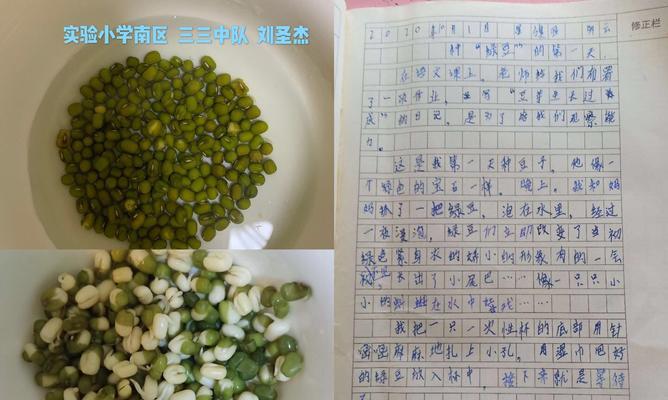 实验小学南区 三三中队 刘圣杰
修正栏
2020年10月1日 星期四
种“绿豆”的第一天
在语文课上，老师给我们布置
了一项作业，写“豆芽生长过
成”的日记，是为了培我们观察能
力。
这是我第一天种豆子，他像一
个绿色的宝石一样。晚上，我和妈
妈抓了一把绿豆，泡在水里，经过
一夜浸泡，绿豆们
绿色
长出了小尾巴……像一只只小
小的蝌蚪在水中
我把一只一次性杯的底部用针
密密麻麻地扎上小孔，用湿巾
的绿豆放入杯中，接下来就是等待
了